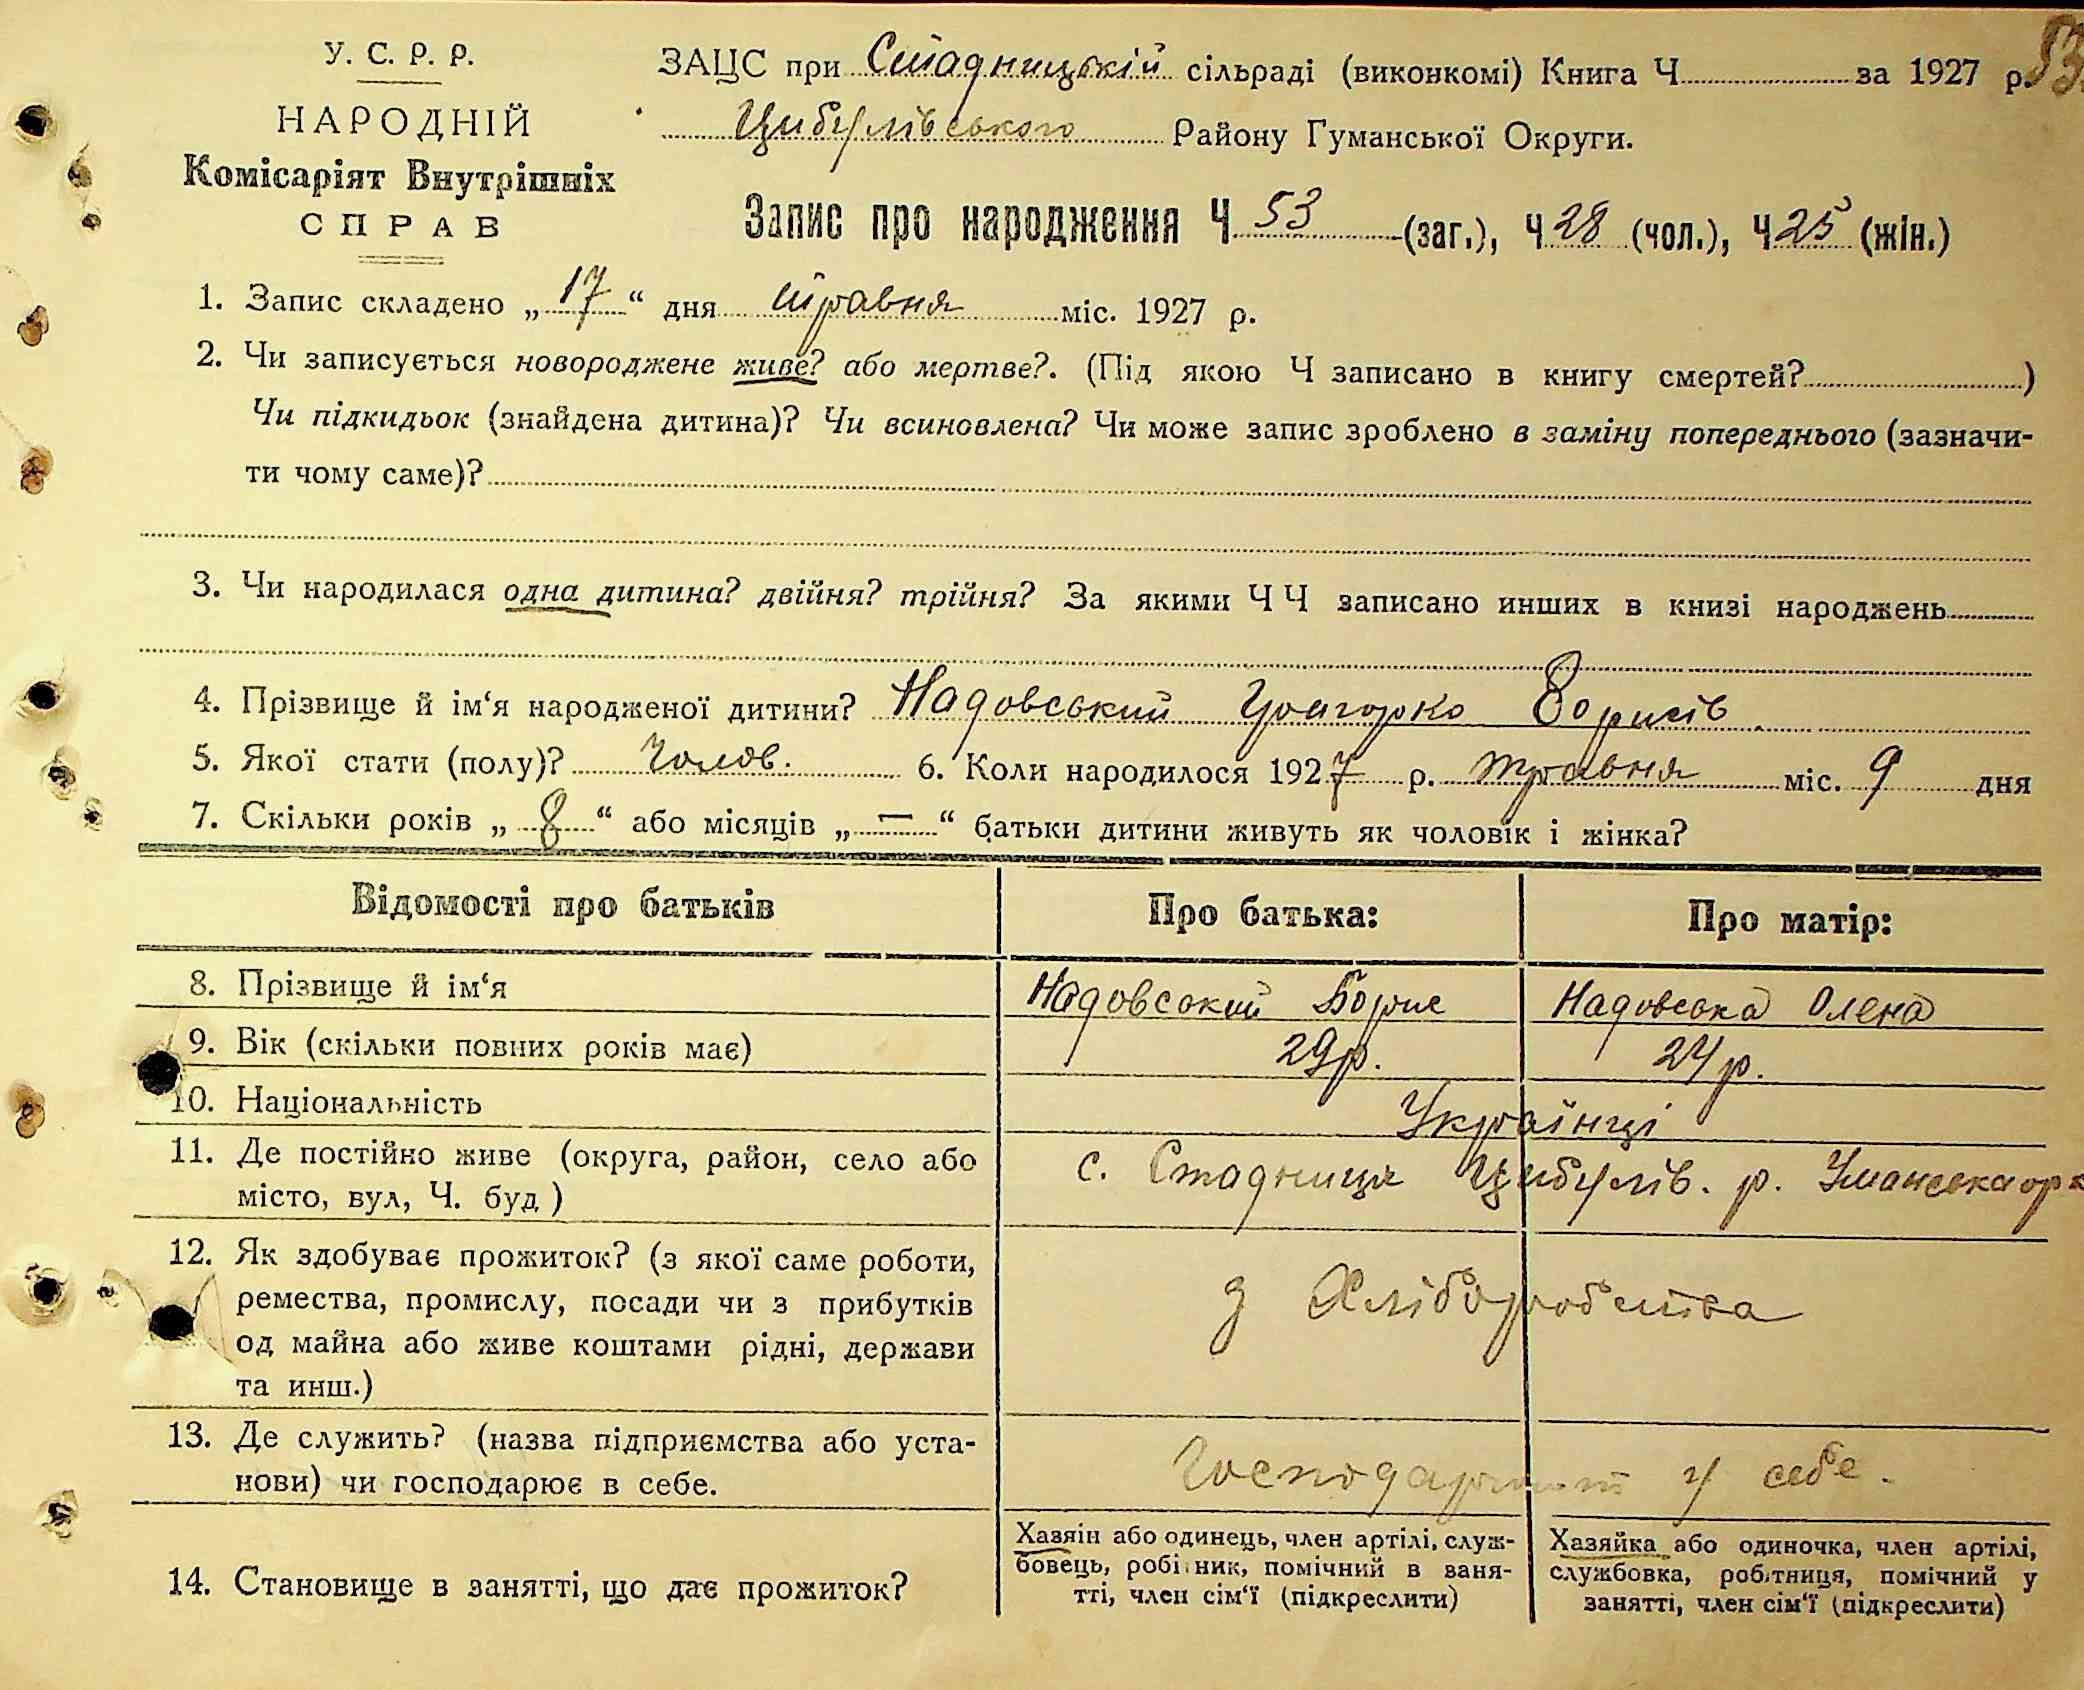 У. С. Р. Р.
НАРОДНІЙ
Комісаріят Внутрішніх
СПРАВ
53
ЗАЦС при Стадницькій сільраді (виконкомі) Книга Ч. за 1927 р.
Цибулівського Району Гуманської Округи.
Запис про народження Ч 53 (заг.), Ч 28 (чол.), Ч 25 (жін.)
1. Запис складено „17“ дня травня міс. 1927 р.
2. Чи записується новороджене живе? або мертве?. (Під якою Ч записано в книгу смертей? )
Чи підкидьок (знайдена дитина)? Чи всиновлена? Чи може запис зроблено в заміну попереднього (зазначи-
ти чому саме)?
3. Чи народилася одна дитина? двійня? трійня? За якими ЧЧ записано инших в книзі народжень
4. Прізвище й ім‘я народженої дитини? Надовський Борисів
5. Якої стати (полу)? Чолов. 6. Коли народилося 1927 р. травня міс. 9 дня
7. Скільки років „8“ або місяців „—“ батьки дитини живуть як чоловік і жінка?
Відомості про батьків Про батька: Про матір:
8. Прізвище й ім‘я Надовський Борис Надовська Олена
9. Вік (скільки повних років має) 29 р. 24 р.
10. Національність Українці
11. Де постійно живе (округа, район, село або
місто, вул, Ч. буд.)
с. Стадниця Цибулів. р. Уманська
12. Як здобуває прожиток? (з якої саме роботи,
ремества, промислу, посади чи з прибутків
од майна або живе коштами рідні, держави
та инш.)
з Хліборобства
13. Де служить? (назва підприємства або уста-
нови) чи господарює в себе.
Господарюют у себе.
14. Становище в занятті, що дає прожиток?
Хазяїн або одинець, член артілі, служ-
бовець, робітник, помічний в заня-
тті, член сім‘ї (підкреслити)
Хазяйка або одиночка, член артілі,
службовка, робітниця, помічний у
занятті, член сім‘ї (підкреслити)